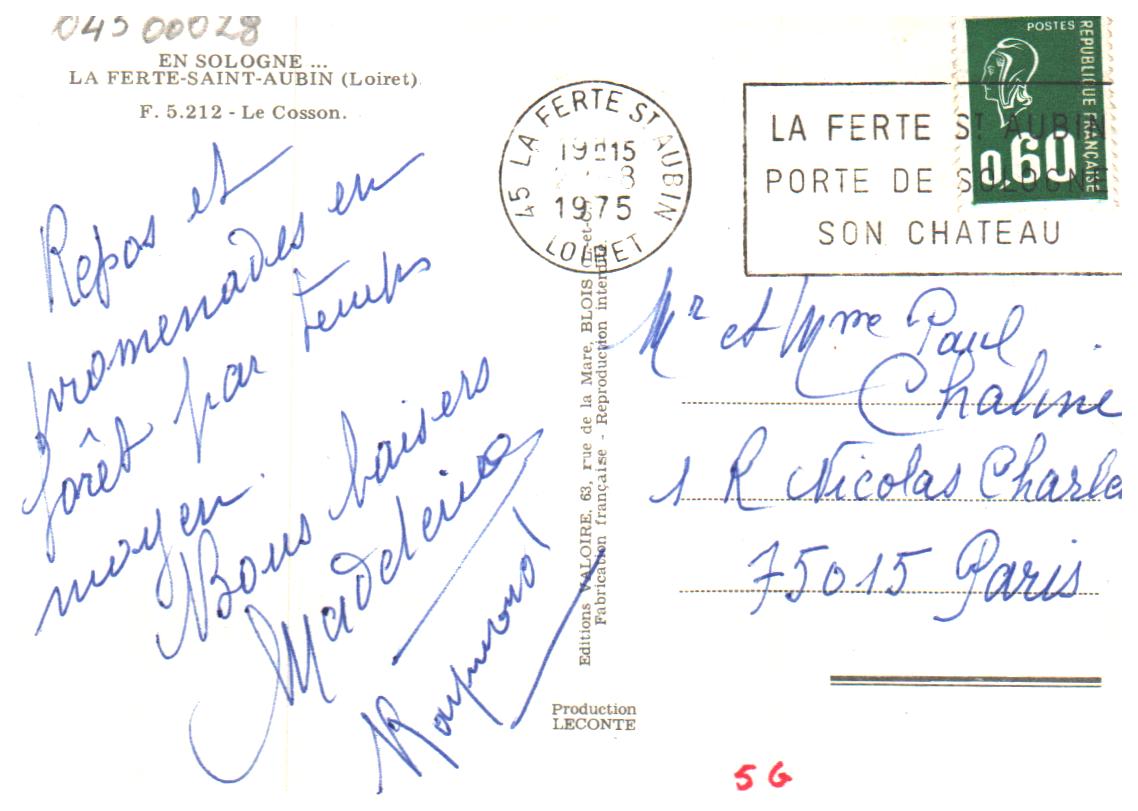 04500028
EN SOLOGNE ...
LA FERTE-SAINT-AUBIN (Loiret)
F. 5.212 - Le Cosson.
Repos et
promenades en
forêt par temps
moyen.
Bons baisers
Madeleine
Raymond
45 LA FERTE ST AUBIN
19 15
8
1975
LOIRET
LA FERTE ST AUBIN
PORTE DE SOLOGNE
SON CHATEAU
POSTES
REPUBLIQUE FRANÇAISE
0,60
Mr et Mme Paul
Chaline
1 R Nicolas Charle
75015 Paris
Editions VALOIRE, 63, rue de la Mare, BLOIS
Fabrication française - Reproduction interdite
Production
LECONTE
5 G